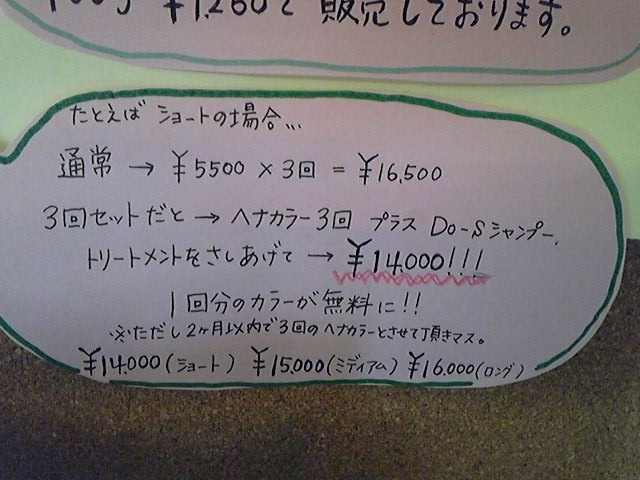 100g ¥1,260で販売しております。
たとえば ショートの場合...
通常 → ¥5500 × 3回 = ¥16,500
3回セットだと → ヘナカラー3回 プラス Do-Sシャンプー,
トリートメントをさしあげて → ¥14,000!!!
1回分のカラーが無料に!!
※ただし2ヶ月以内で3回のヘナカラーとさせて頂きマス。
¥14,000(ショート) ¥15,000(ミディアム) ¥16,000(ロング)